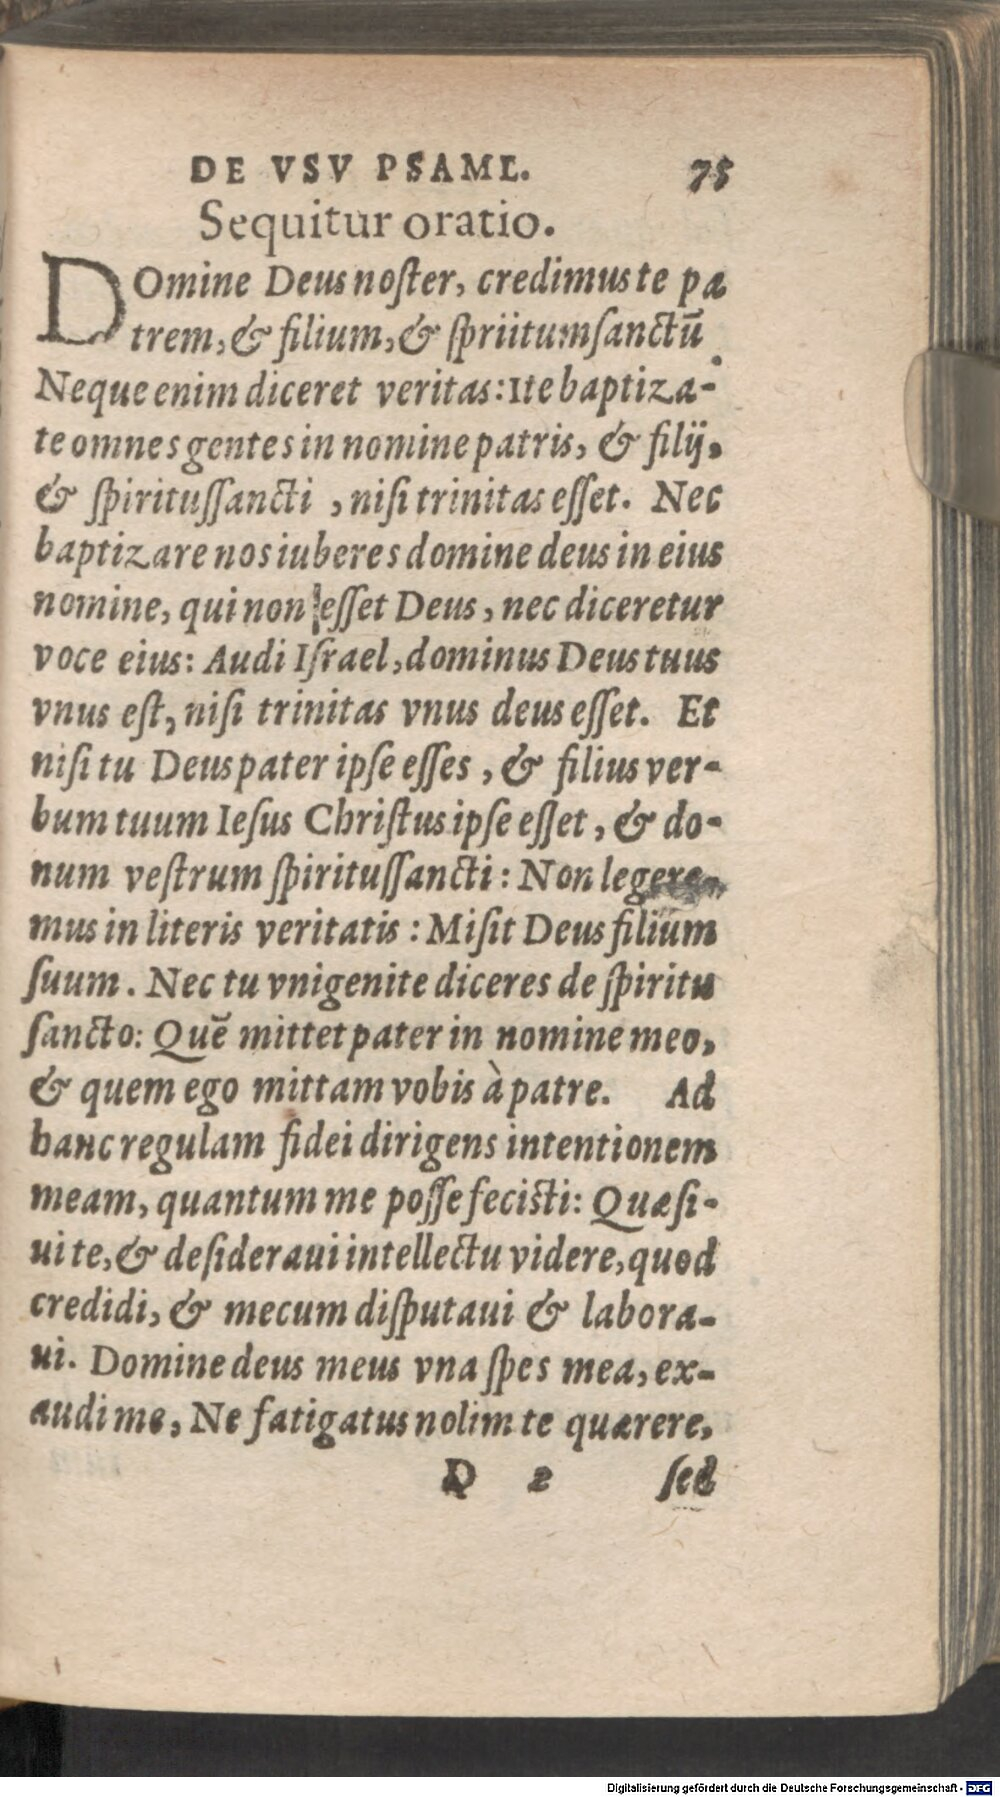 DE VSV PSAML. 75
Sequitur oratio.
DOmine Deus noſter, credimus te pa
trem, & filium, & ſpriitum ſanctū.
Neque enim diceret veritas: Ite baptiza-
te omnes gentes in nomine patris, & filij,
& ſpirituſſancti , niſi trinitas eſſet. Nec
baptizare nos iuberes domine deus in eius
nomine, qui non eſſet Deus, nec diceretur
voce eius: Audi Iſrael, dominus Deus tuus
vnus eſt, niſi trinitas vnus deus eſſet. Et
niſi tu Deus pater ipſe eſſes , & filius ver-
bum tuum Ieſus Chriſtus ipſe eſſet , & do-
num veſtrum ſpirituſſancti: Non legere-
mus in literis veritatis : Miſit Deus filium
ſuum. Nec tu vnigenite diceres de ſpiritu
ſancto: Quē mittet pater in nomine meo,
& quem ego mittam vobis à patre. Ad
hanc regulam fidei dirigens intentionem
meam, quantum me poſſe feciſti: Quæſi-
ui te, & deſideraui intellectu videre, quod
credidi, & mecum diſputaui & labora-
ui. Domine deus meus vna ſpes mea, ex-
audi me, Ne fatigatus nolim te quærere,
D 2 ſed
Digitalisierung gefördert durch die Deutsche Forschungsgemeinschaft - DFG